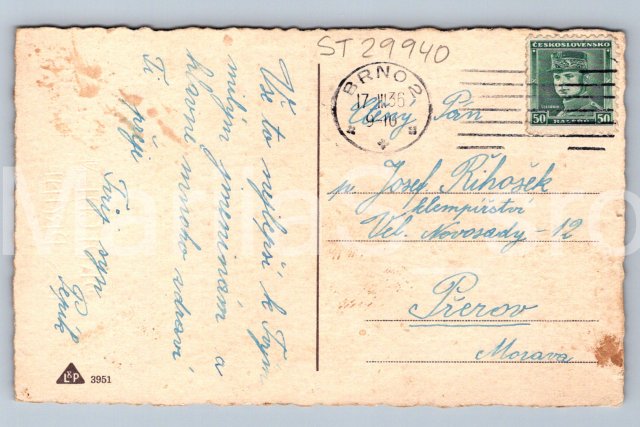 ST 29940
BRNO 2
17.III.36
9-10
ČESKOSLOVENSKO
50 50
Vše to nejlepší k Tvým
milým jmeninám a
hlavně mnoho zdraví
Ti
přeje Tvůj syn
Vážený Pán
p. Josef Řihošek
klempířství
Vel. Novosady - 12
Přerov
Morava
LKP 3951